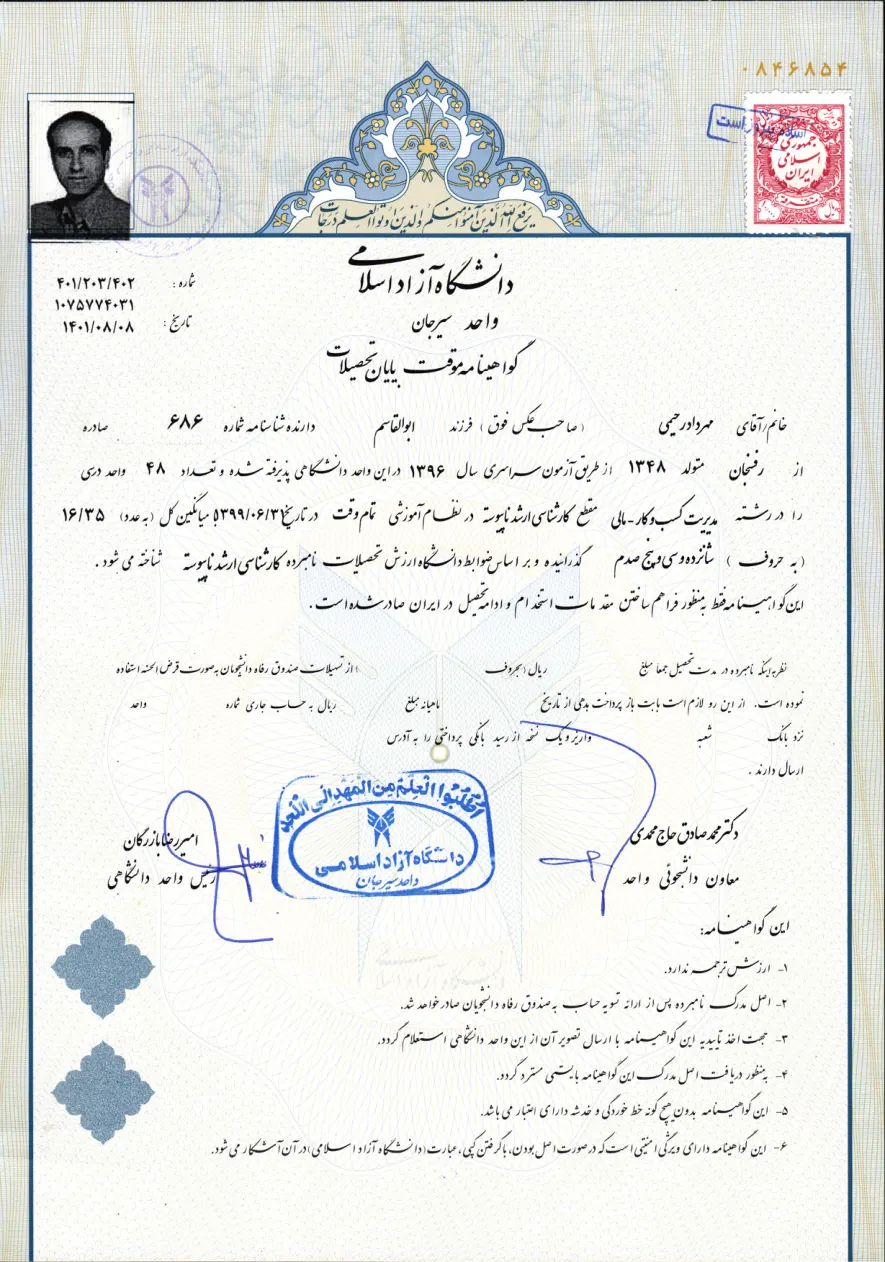 ۰۸۴۶۸۵۴
جمهوری
اسلامی
ایران
ریال
یرفع الله الذین آمنوا منکم والذین اوتوا العلم درجات
دانشگاه آزاد اسلامی
واحد سیرجان
گواهینامه موقت پایان تحصیلات
شماره: ۴۰۱/۲۰۳/۴۰۲
۱۰۷۵۷۷۴۰۳۱
تاریخ: ۱۴۰۱/۰۸/۰۸
خانم/آقای مهرداد رحیمی (صاحب عکس فوق) فرزند ابوالقاسم دارنده شناسنامه شماره ۶۸۶ صادره
از رفسنجان متولد ۱۳۴۸ از طریق آزمون سراسری سال ۱۳۹۶ در این واحد دانشگاهی پذیرفته شده و تعداد ۴۸ واحد درسی
را در رشته مدیریت کسب و کار - مالی مقطع کارشناسی ارشد ناپیوسته در نظام آموزشی تمام وقت در تاریخ ۱۳۹۹/۰۶/۳۱ با میانگین کل (به عدد) ۱۶/۳۵
(به حروف) شانزده و سی و پنج صدم گذرانیده و بر اساس ضوابط دانشگاه ارزش تحصیلات نامبرده کارشناسی ارشد ناپیوسته شناخته می شود.
این گواهینامه فقط به منظور فراهم ساختن مقدمات استخدام و ادامه تحصیل در ایران صادر شده است.
نظر به اینکه نامبرده در مدت تحصیل جمعا مبلغ ریال (بحروف ) از تسهیلات صندوق رفاه دانشجویان به صورت قرض الحسنه استفاده
نموده است. از این رو لازم است بابت باز پرداخت بدهی از تاریخ ماهیانه مبلغ ریال به حساب جاری شماره واحد
نزد بانک شعبه واریز و یک نسخه از رسید بانکی پرداختی را به آدرس
ارسال دارند.
دکتر محمدصادق حاج محمدی
معاون دانشجوئی واحد
امیررضا بازرگان
رئیس واحد دانشگاهی
اُطلُبوا العِلمَ مِنَ المَهدِ اِلَی اللَّحد
دانشگاه آزاد اسلامی
واحد سیرجان
این گواهینامه:
۱- ارزش ترجمه ندارد.
۲- اصل مدرک نامبرده پس از ارائه تسویه حساب به صندوق رفاه دانشجویان صادر خواهد شد.
۳- جهت اخذ تاییدیه این گواهینامه با ارسال تصویر آن از این واحد دانشگاهی استعلام گردد.
۴- به منظور دریافت اصل مدرک این گواهینامه بایستی مسترد گردد.
۵- این گواهینامه بدون هیچ گونه خط خوردگی و خدشه دارای اعتبار می باشد.
۶- این گواهینامه دارای ویژگی امنیتی است که در صورت اصل بودن، با گرفتن کپی، عبارت (دانشگاه آزاد اسلامی) در آن آشکار می شود.